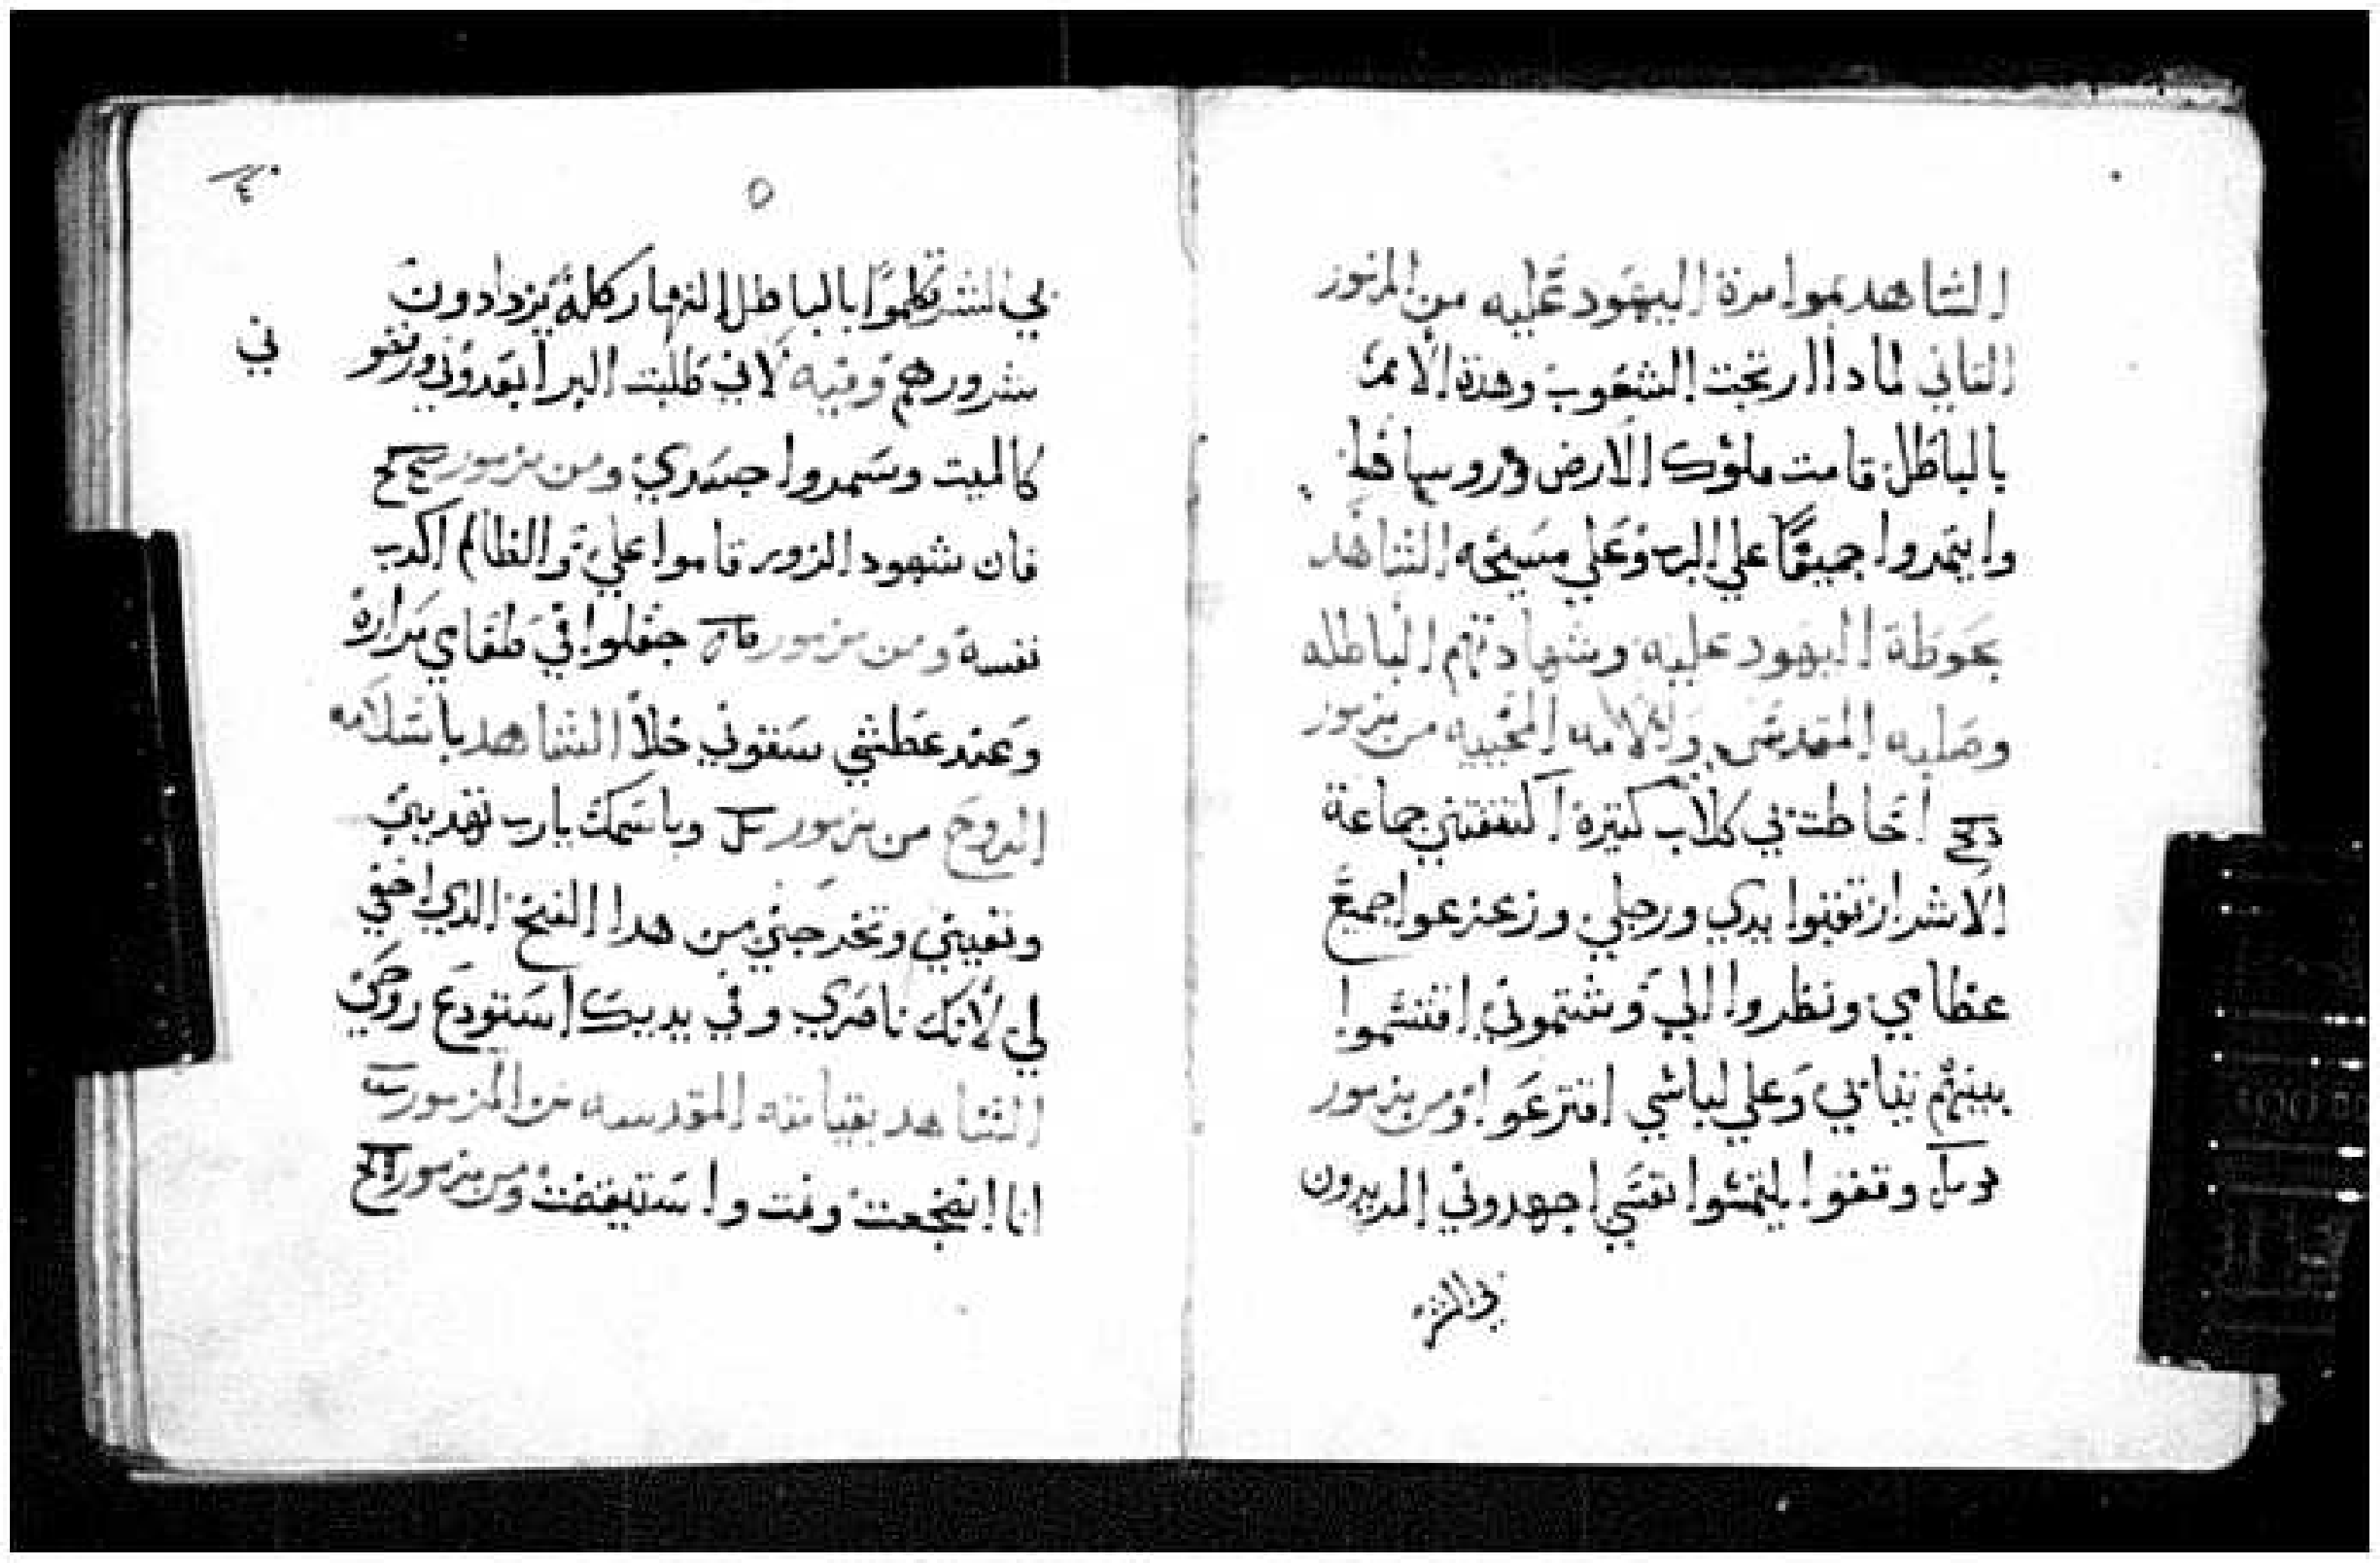 الشاهد بموامرة اليهود عليه من المزمور
التاني لمادا ارتجت الشعوب وهذة الامم
بالباطل قامت ملوك الارض وروساها
وايتمروا جميعًا علي الرب وعلي مسيحه الشاهد
بحوطة اليهود عليه وشهادتهم الباطله
وصلبه المقدس والامه المحييه من مزمور
احاطت بي كلاب كتيرة اكتنفتني جماعة
الاشرار تقبوا يدي ورجلي وزعزعوا جميع
عظامي ونظروا الي وشتموني اقتسموا
بينهم تيابي وعلي لباسي اقترعوا ومن مزمور
وقفوا يلتمسوا نفسي اجهدوني المديرون
لي الشر
٥
لي الشر تكلموا بالباطل النهار كلة يزدادون
شرورهم وفيه لاني طلبت البر ابعدوني ورفضو
ني
كالميت وسمروا جسدي ومن مزمور
فان شهود الزور قاموا علي والظالم اكدب
نفسة ومن مزمور جعلوا في طعامي مرارة
وعند عطشي سقوني خلاً الشاهد باسلامه
الروح من مزمور وباسمك يارب تهديني
وتعينني وتخرجني من هدا الفخ الدي اخفي
لي لانك ناصري وفي يديك استودع روحي
الشاهد بقيامته المقدسه من المزمور
انا انضجعت ونمت واستيقضت ومن مزمور